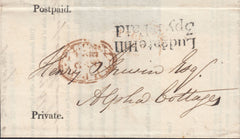 Postpaid.
Ludgate Hill
2py P. Paid
Henry Erwin Esqr.
Alpha Cottages
Private.